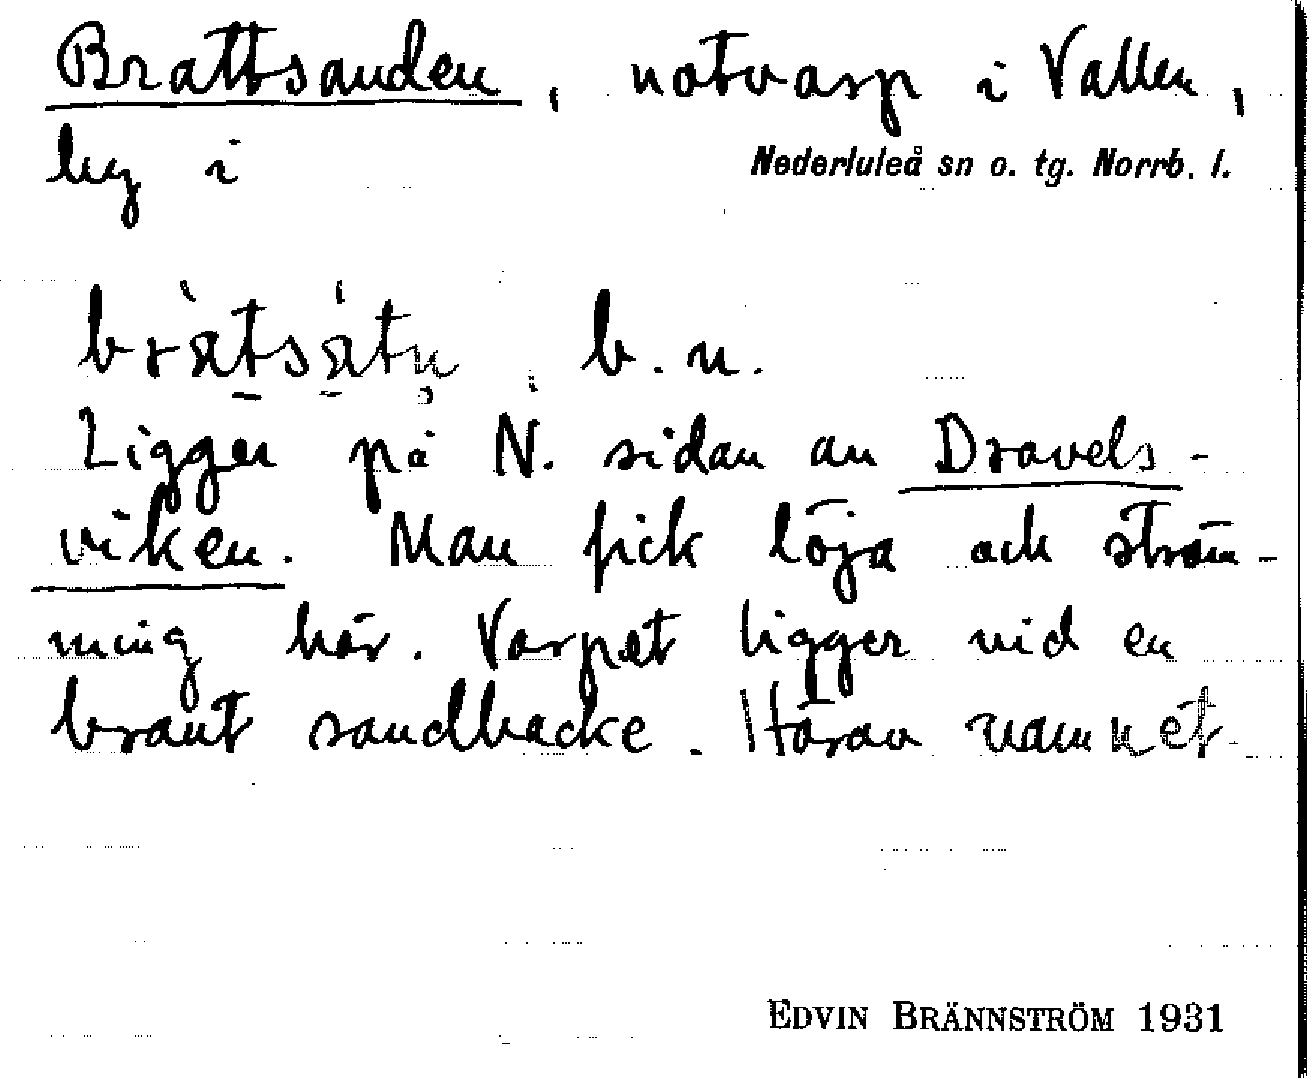 Brattsanden, notvarp i Vallen,
lεg i
Nederluleå sn o. tg. Norrb. l.
b. n.
Ligger på N. sidan av Dravels-
viken. Man fick löja och ström-
ming här. Varpet ligger vid en
brant sandbacke. Härav namnet
EDVIN BRÄNNSTRÖM 1931